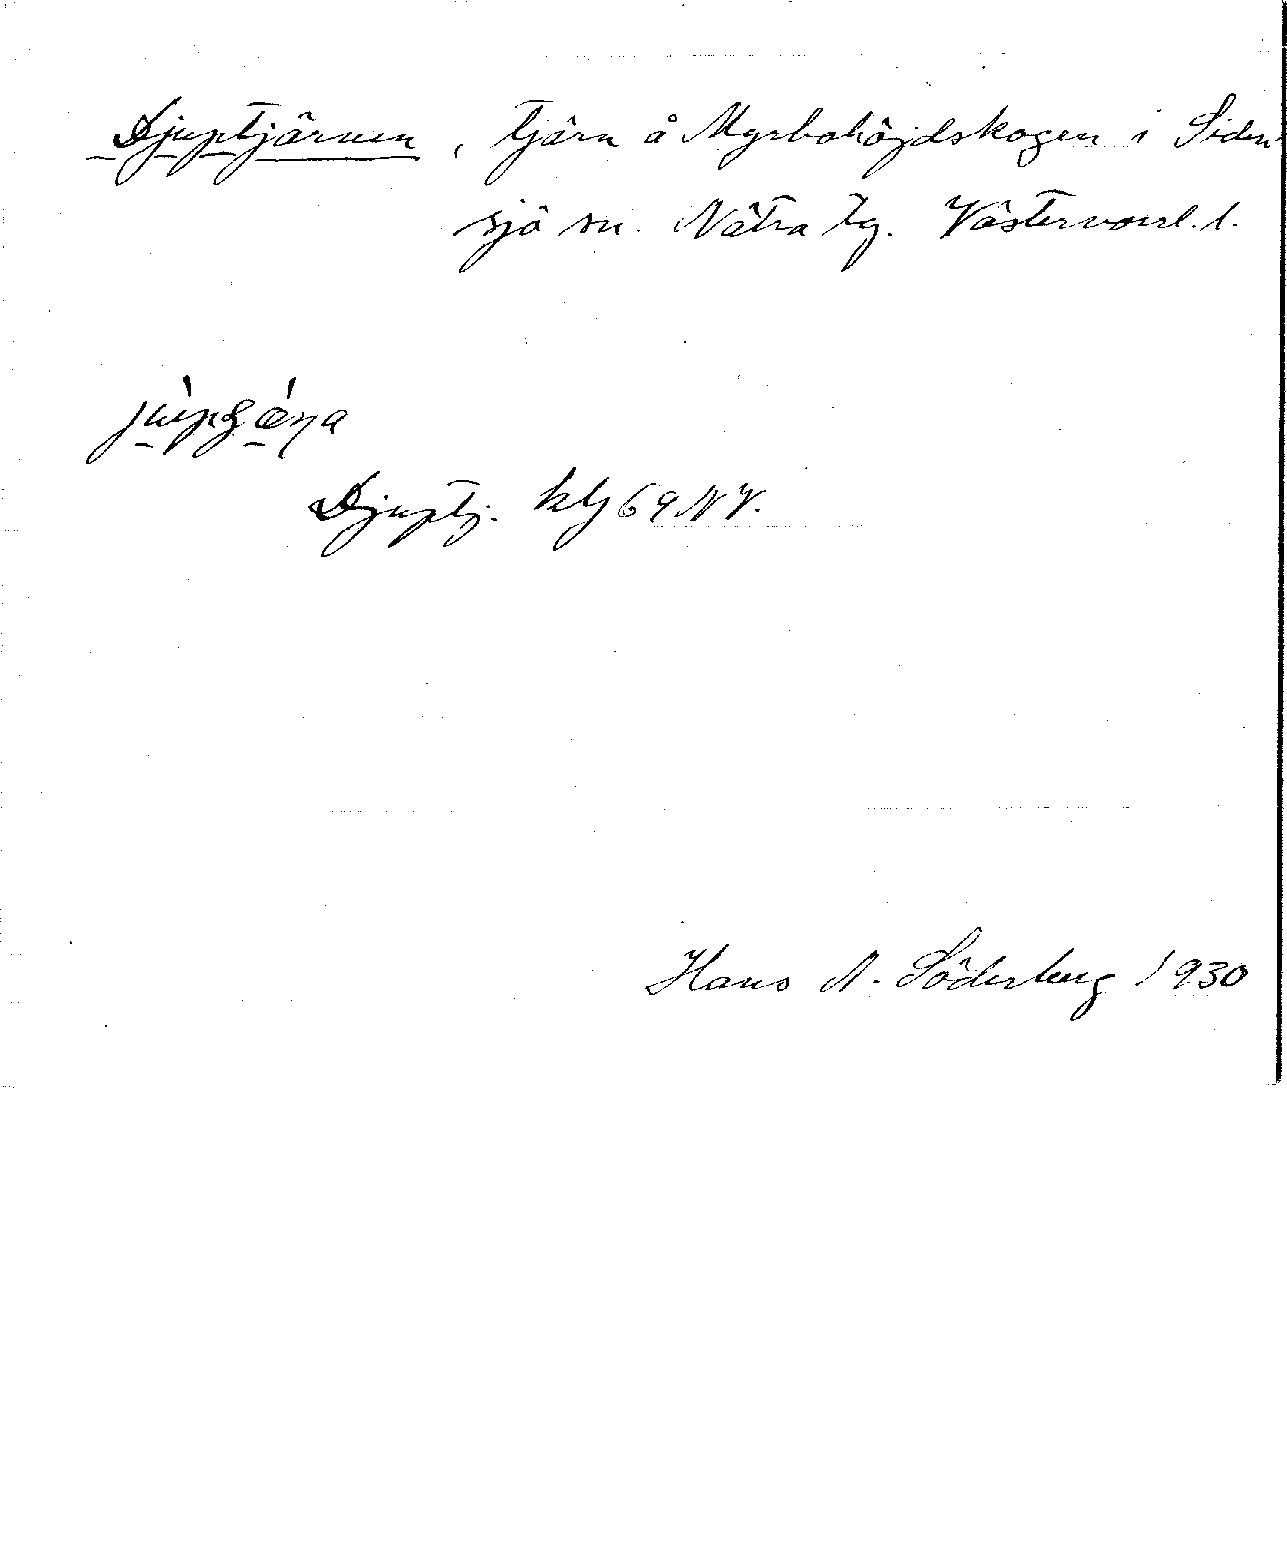 Djuptjärnen, tjärn å Myrbohöjdskogen i Siden-
sjö sn. Nätra tg. Västernorrl. l.
Djuptj. kbl 69 NV.
Hans A. Söderberg 1930